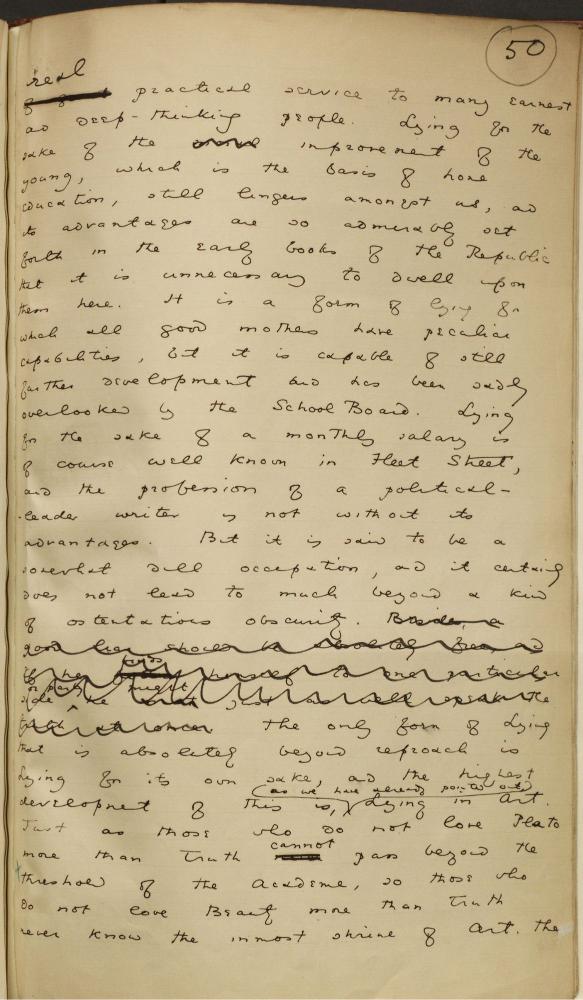 50
real
practical service to many earnest
and deep-thinking people. Lying for the
sake of the improvement of the
young, which is the basis of home
education, still lingers amongst us, and
its advantages are so admirably set
forth in the early books of the Republic
that it is unnecessary to dwell upon
them here. It is a form of lying for
which all good mothers have peculiar
capabilities, but it is capable of still
further development and has been sadly
overlooked by the School Board. Lying
for the sake of a monthly salary is
of course well known in Fleet Street,
and the profession of a political-
leader writer is not without its
advantages. But it is said to be a
somewhat dull occupation, and it certainly
does not lead to much beyond a kind
of ostentatious obscurity. Besides, a
good liar should be absolutely free and
if he binds herself to one particular
or party might
side he just as well speak the
truth at once. The only form of lying
that is absolutely beyond reproach is
lying for its own sake, and the highest
(as we have already pointed out)
development of this is, Lying in Art.
Just as those who do not love Plato
cannot
more than Truth pass beyond the
threshold of the Academe, so those who
do not love Beauty more than Truth
never know the inmost shrine of Art. The